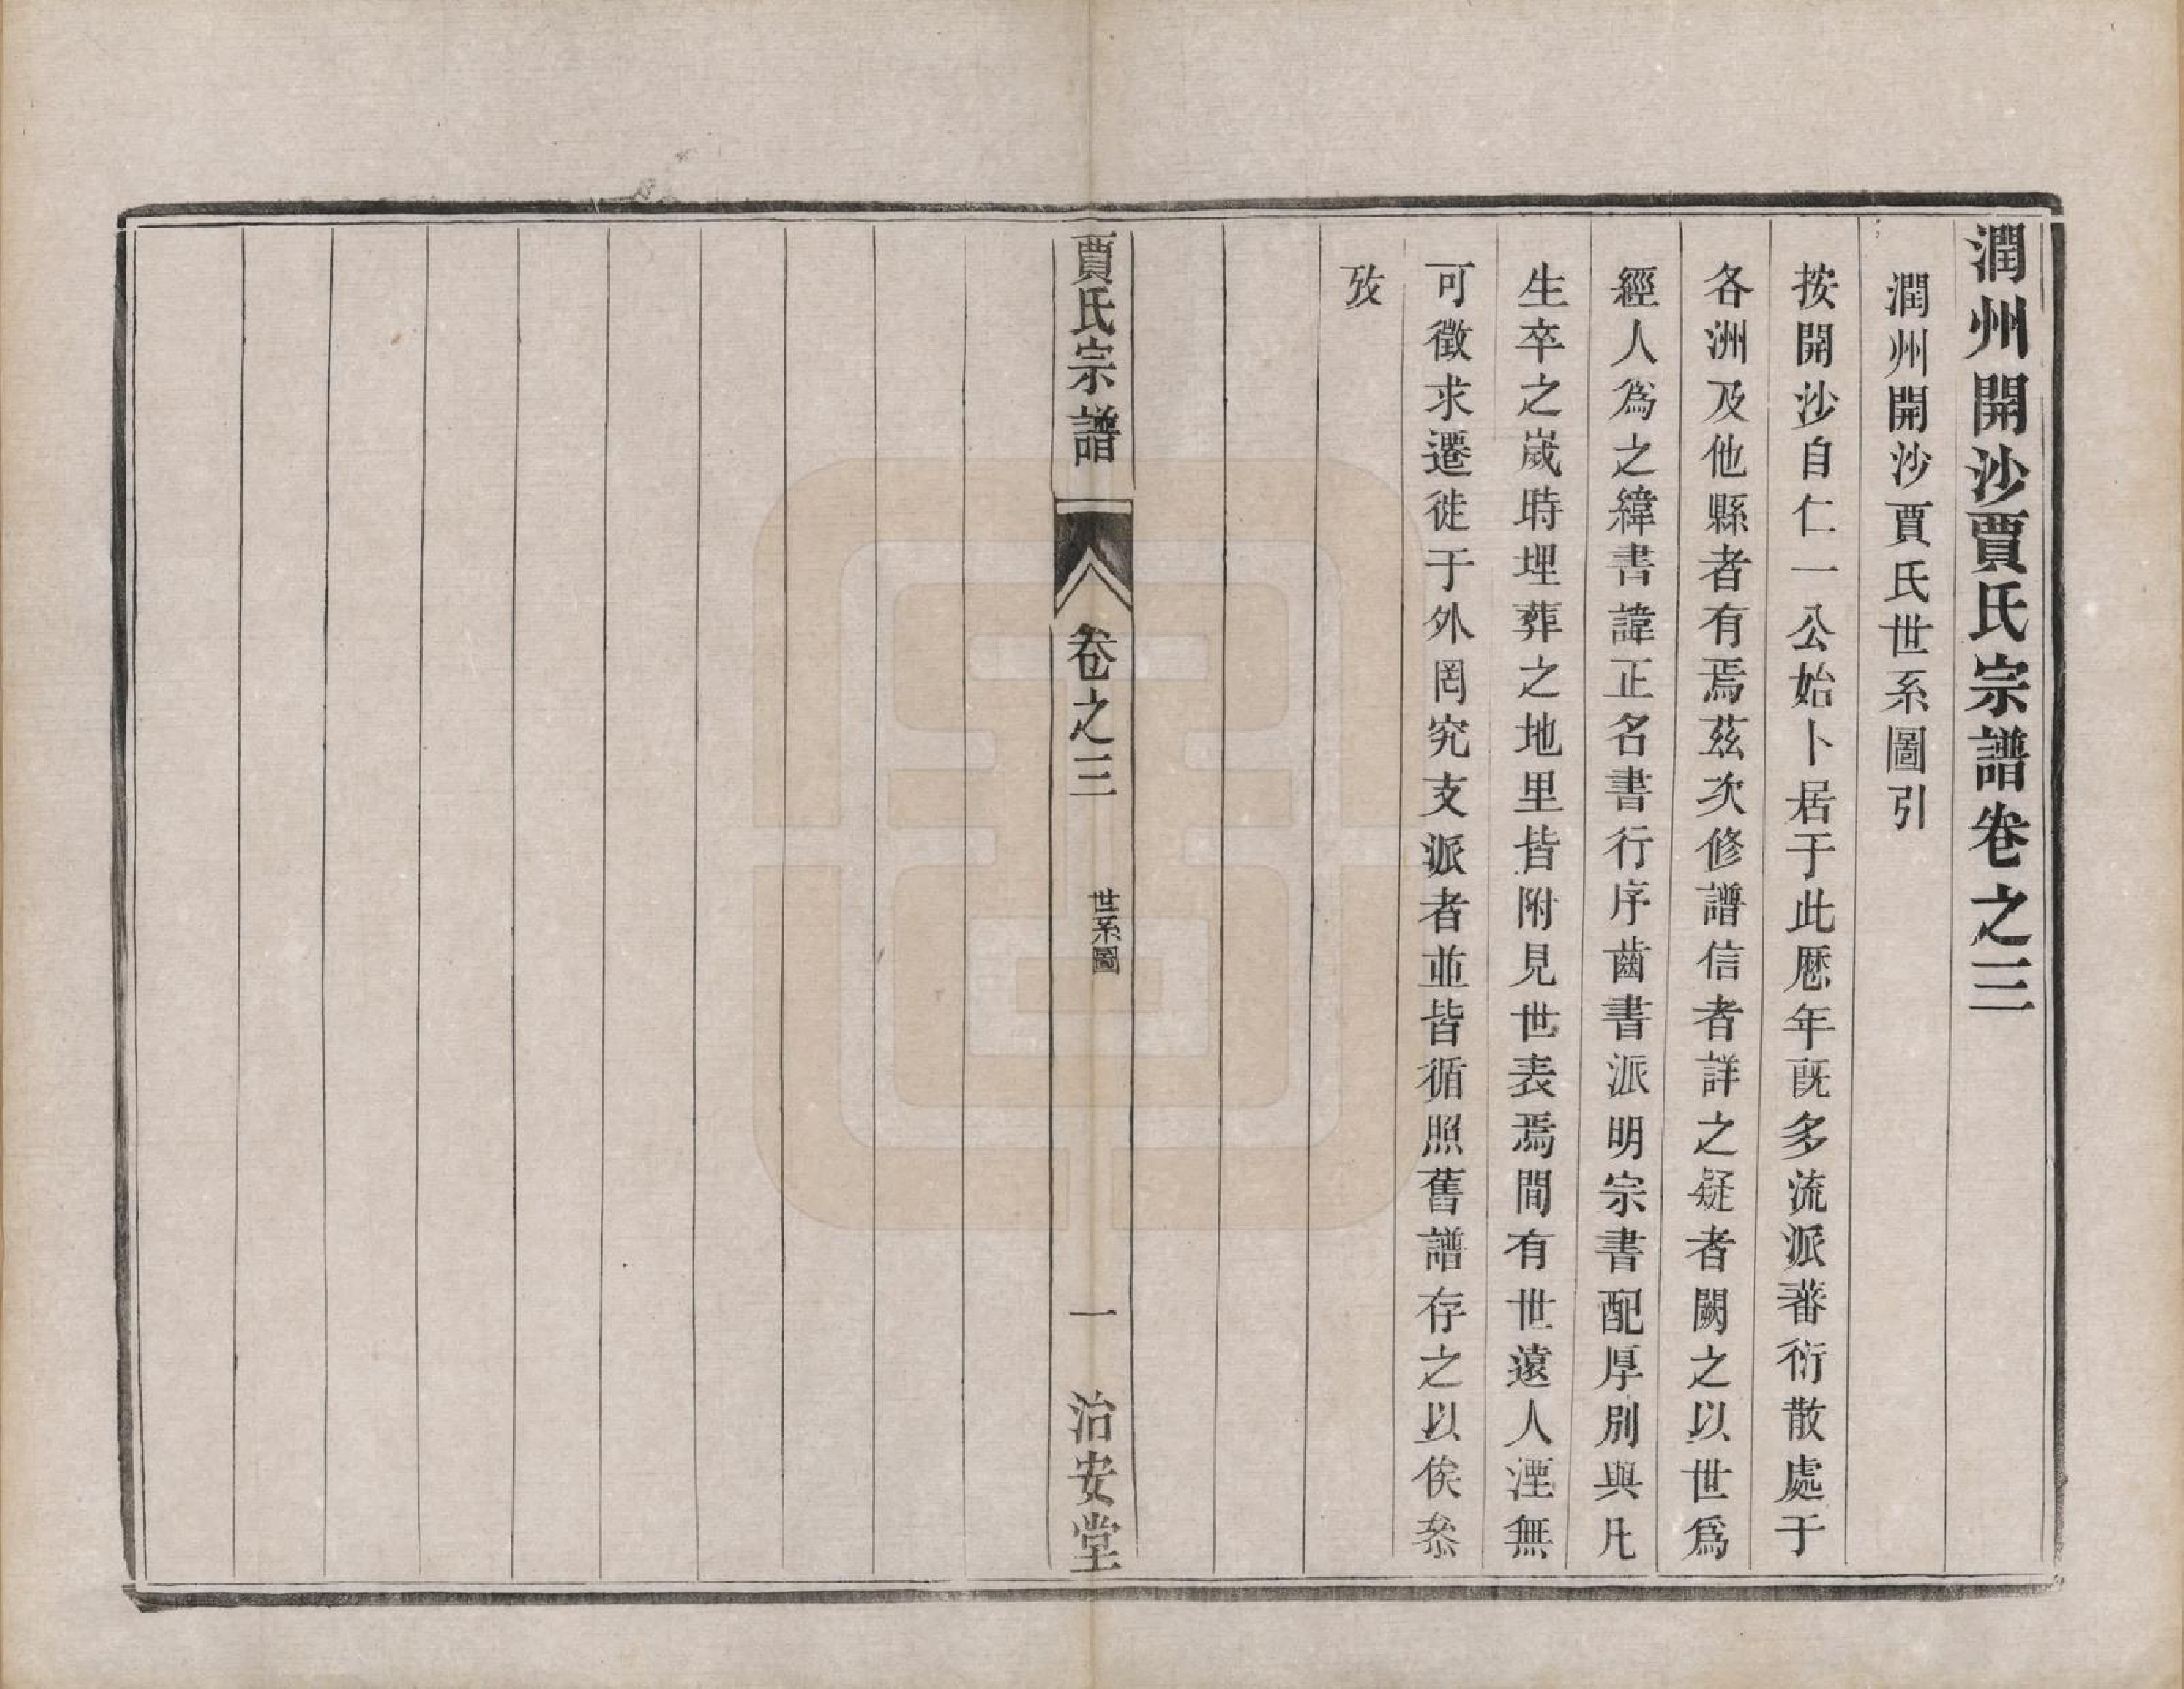 潤州開沙賈氏宗譜卷之三
潤州開沙賈氏世系圖引
按開沙自仁一公始卜居于此歴年旣多流派蕃衍散處于
各洲及他縣者有焉茲次修譜信者詳之疑者闕之以世爲
經人爲之緯書諱正名書行序齒書派明宗書配厚別與凡
生卒之歲時埋葬之地里皆附見世表焉間有世遠人湮無
可徵求遷徙于外罔究支派者並皆循照舊譜存之以俟叅
攷
賈氏宗譜
卷之三
世系圖
一
治安堂